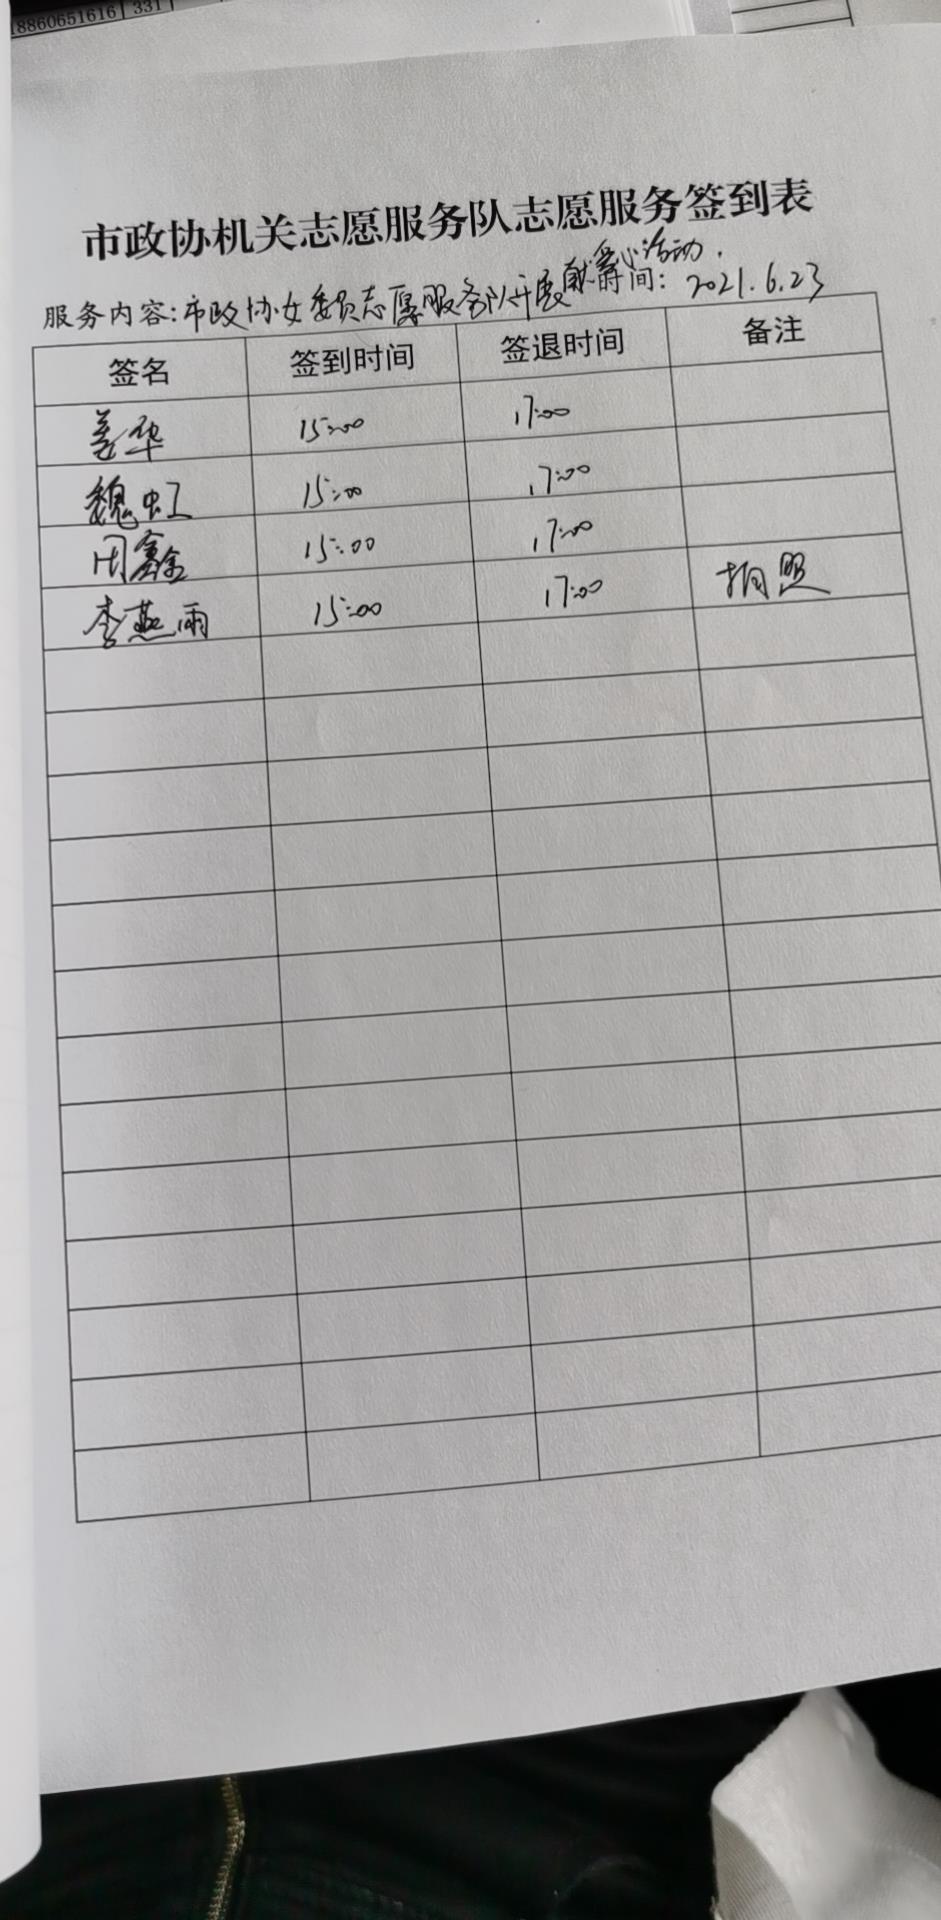 18860651616 331
市政协机关志愿服务队志愿服务签到表
服务内容:市政协女委员志愿服务队开展献爱心活动. 时间: 2021.6.23
签名 签到时间 签退时间 备注
姜华 15:00 17:00
魏虹 15:00 17:00
周鑫 15:00 17:00
李燕雨 15:00 17:00 拍照